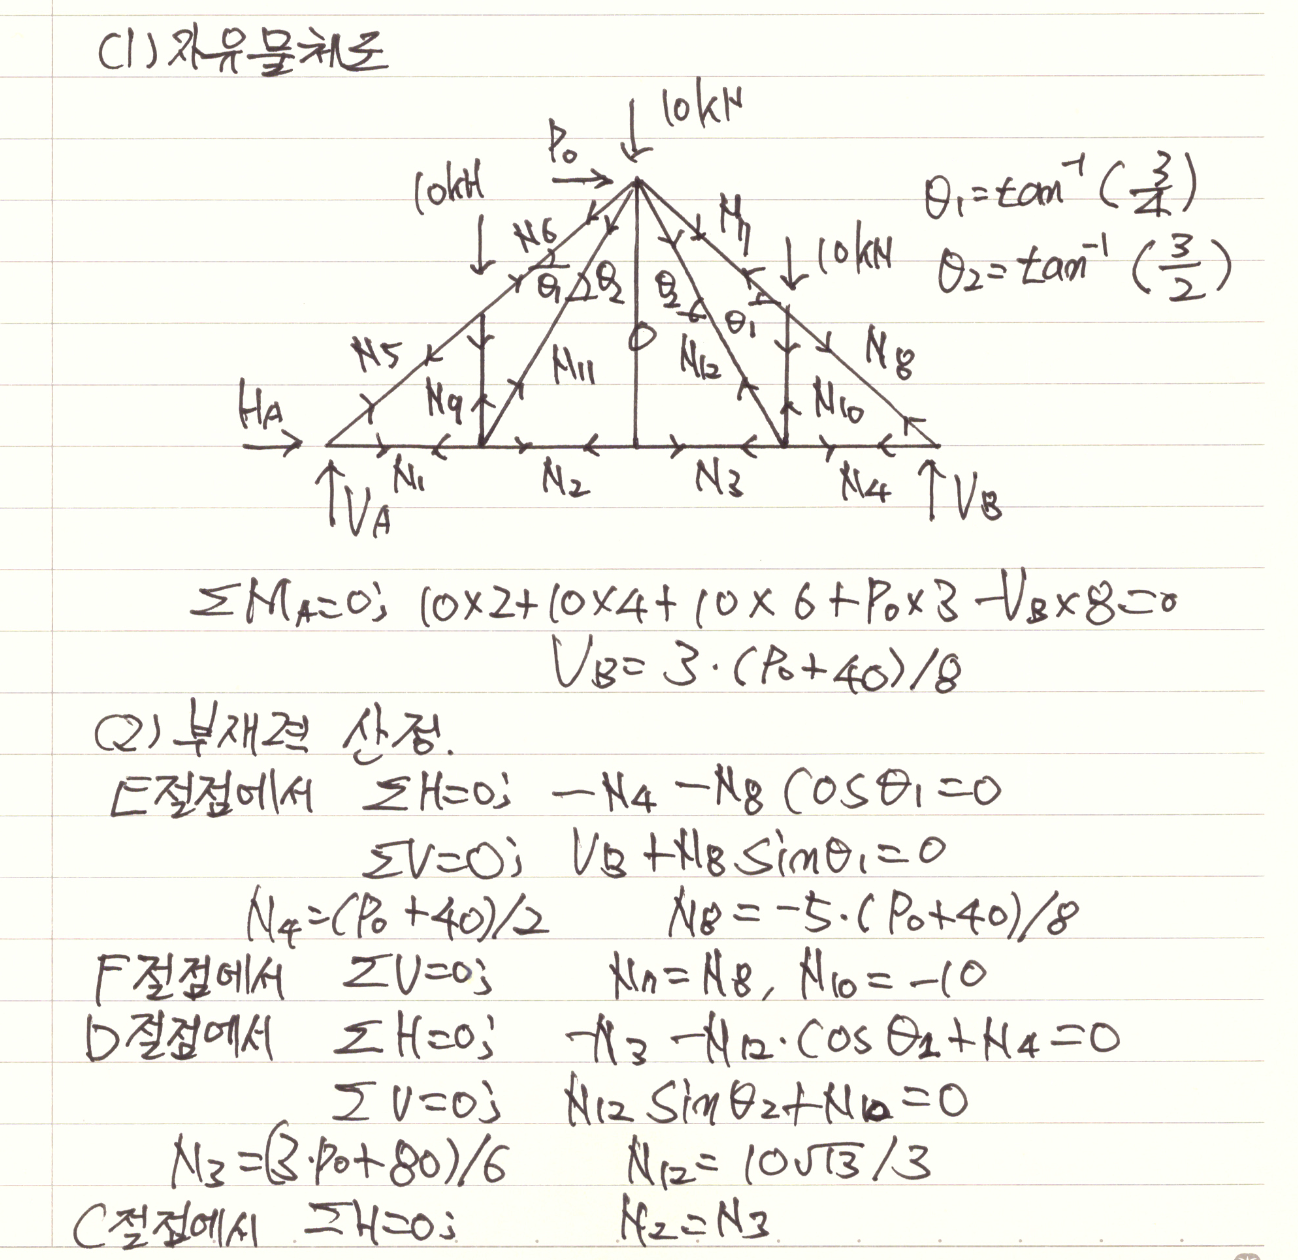 (1) 자유물체도
10kN
P₀
10kN
θ₁=tan⁻¹(3/4)
N₆
N₇
10kN
θ₂=tan⁻¹(3/2)
θ₁
θ₂
θ₂
θ₁
0
N₅
N₁₁
N₁₂
N₈
H_A
N₉
N₁₀
N₁
N₂
N₃
N₄
V_A
V_B
ΣM_A=0; 10×2+10×4+10×6+P₀×3-V_B×8=0
V_B=3·(P₀+40)/8
(2) 부재력 산정.
E절점에서 ΣH=0; -N₄-N₈cosθ₁=0
ΣV=0; V_B+N₈sinθ₁=0
N₄=(P₀+40)/2 N₈=-5·(P₀+40)/8
F절점에서 ΣV=0; N₇=N₈, N₁₀=-10
D절점에서 ΣH=0; -N₃-N₁₂·cosθ₂+N₄=0
ΣV=0; N₁₂sinθ₂+N₁₀=0
N₃=(3·P₀+80)/6 N₁₂=10√13/3
C절점에서 ΣH=0; N₂=N₃